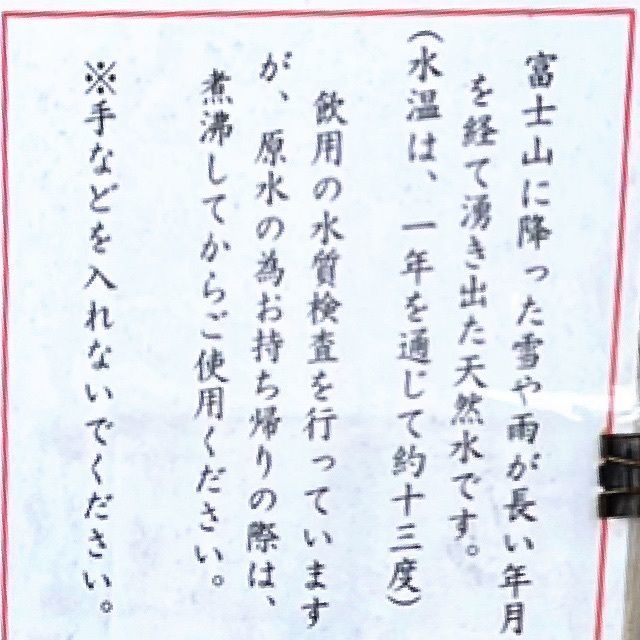 富士山に降った雪や雨が長い年月
を経て湧き出た天然水です。
(水温は、一年を通じて約十三度)
飲用の水質検査を行っています
が、原水の為お持ち帰りの際は、
煮沸してからご使用ください。
※手などを入れないでください。